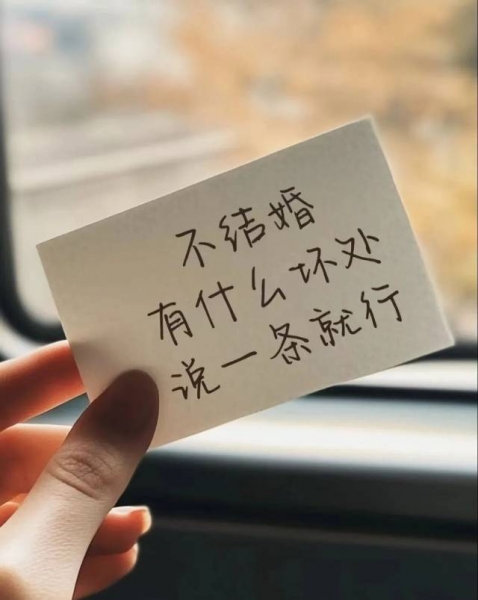 不结婚
有什么坏处
说一条就行